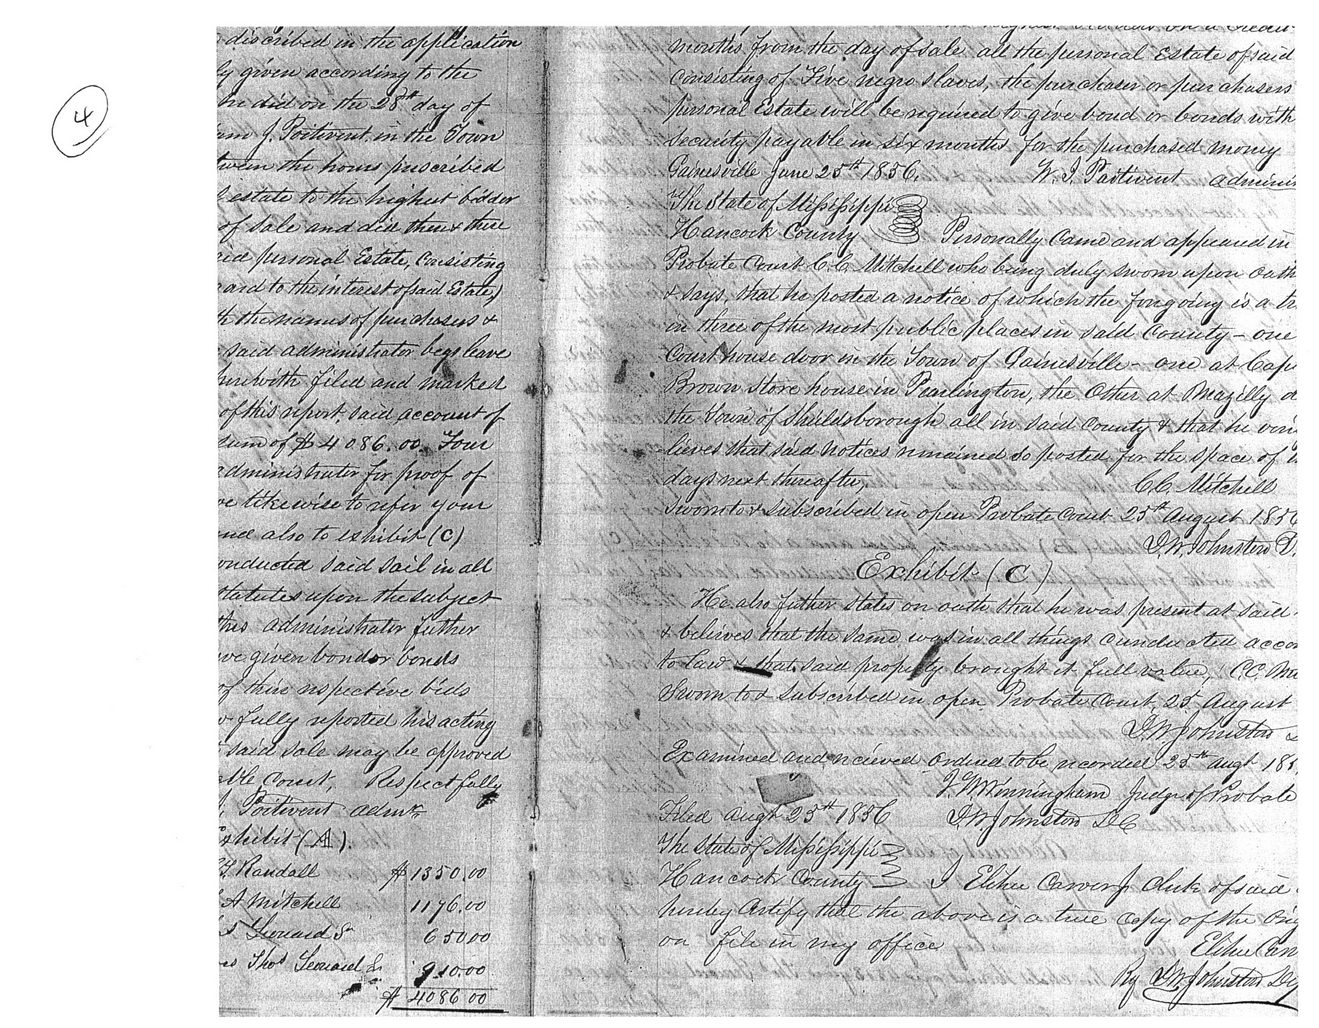 4
discribed in the application
given according to the
did on the 28th day of
J. Poitivent in the Town
the hours prescribed
estate to the highest bidder
of sale and did then & there
personal Estate, consisting
to the interest of said Estate,)
the names of purchasers &
said administrator begs leave
herewith filed and marked
of this report, said account of
sum of $4086.00. Four
administrator for proof of
likewise to refer your
also to exhibit (C)
conducted said sail in all
statutes upon the subject
this administrator further
given bond or bonds
of their respective bids
fully reported his acting
said sale may be approved
Court, Respectfully
Poitivent admr.
Exhibit (A)
Randall $1350.00
A Mitchell 1176.00
Leonard Sr 650.00
Thos Leonard Sr 910.00
$4086.00
months from the day of sale all the personal Estate of said
consisting of Five negro slaves, the purchaser or purchasers
personal Estate will be required to give bond or bonds with
security payable in six months for the purchased money
Gainesville June 25th 1856. W. J. Poitivent
The State of Mississippi
Hancock County Personally came and appeared in
Probate Court C.C. Mitchell who being duly sworn upon oath
& says, that he posted a notice of which the forgoing is a
in three of the most public places in said County - one
Court house door in the Town of Gainesville - one at
Brown store house in Pearlington, the other at
the Town of Shieldsborough all in said County & that he
lieves that said notices remained so posted for the space of
days next thereafter, C.C. Mitchell
Sworn to & subscribed in open Probate Court 25th August 1856
J.W. Johnston D.
Exhibit (C)
He also futher states on oath that he was present at said
& believes that the same was in all things cunducted
to Law & that said property brought it full value, C.C.
Sworn to & subscribed in open Probate Court, 25 August
J.W. Johnston
Examined and recieved ordered to be recorded 25th augt
Judge of Probate
Filed Augt 25th 1856 J.W. Johnston DC
The State of Mississippi
Hancock County I Elihu Carver Clerk of said
hereby certify that the above is a true copy of the
on file in my office
Elihu
By J.W. Johnston